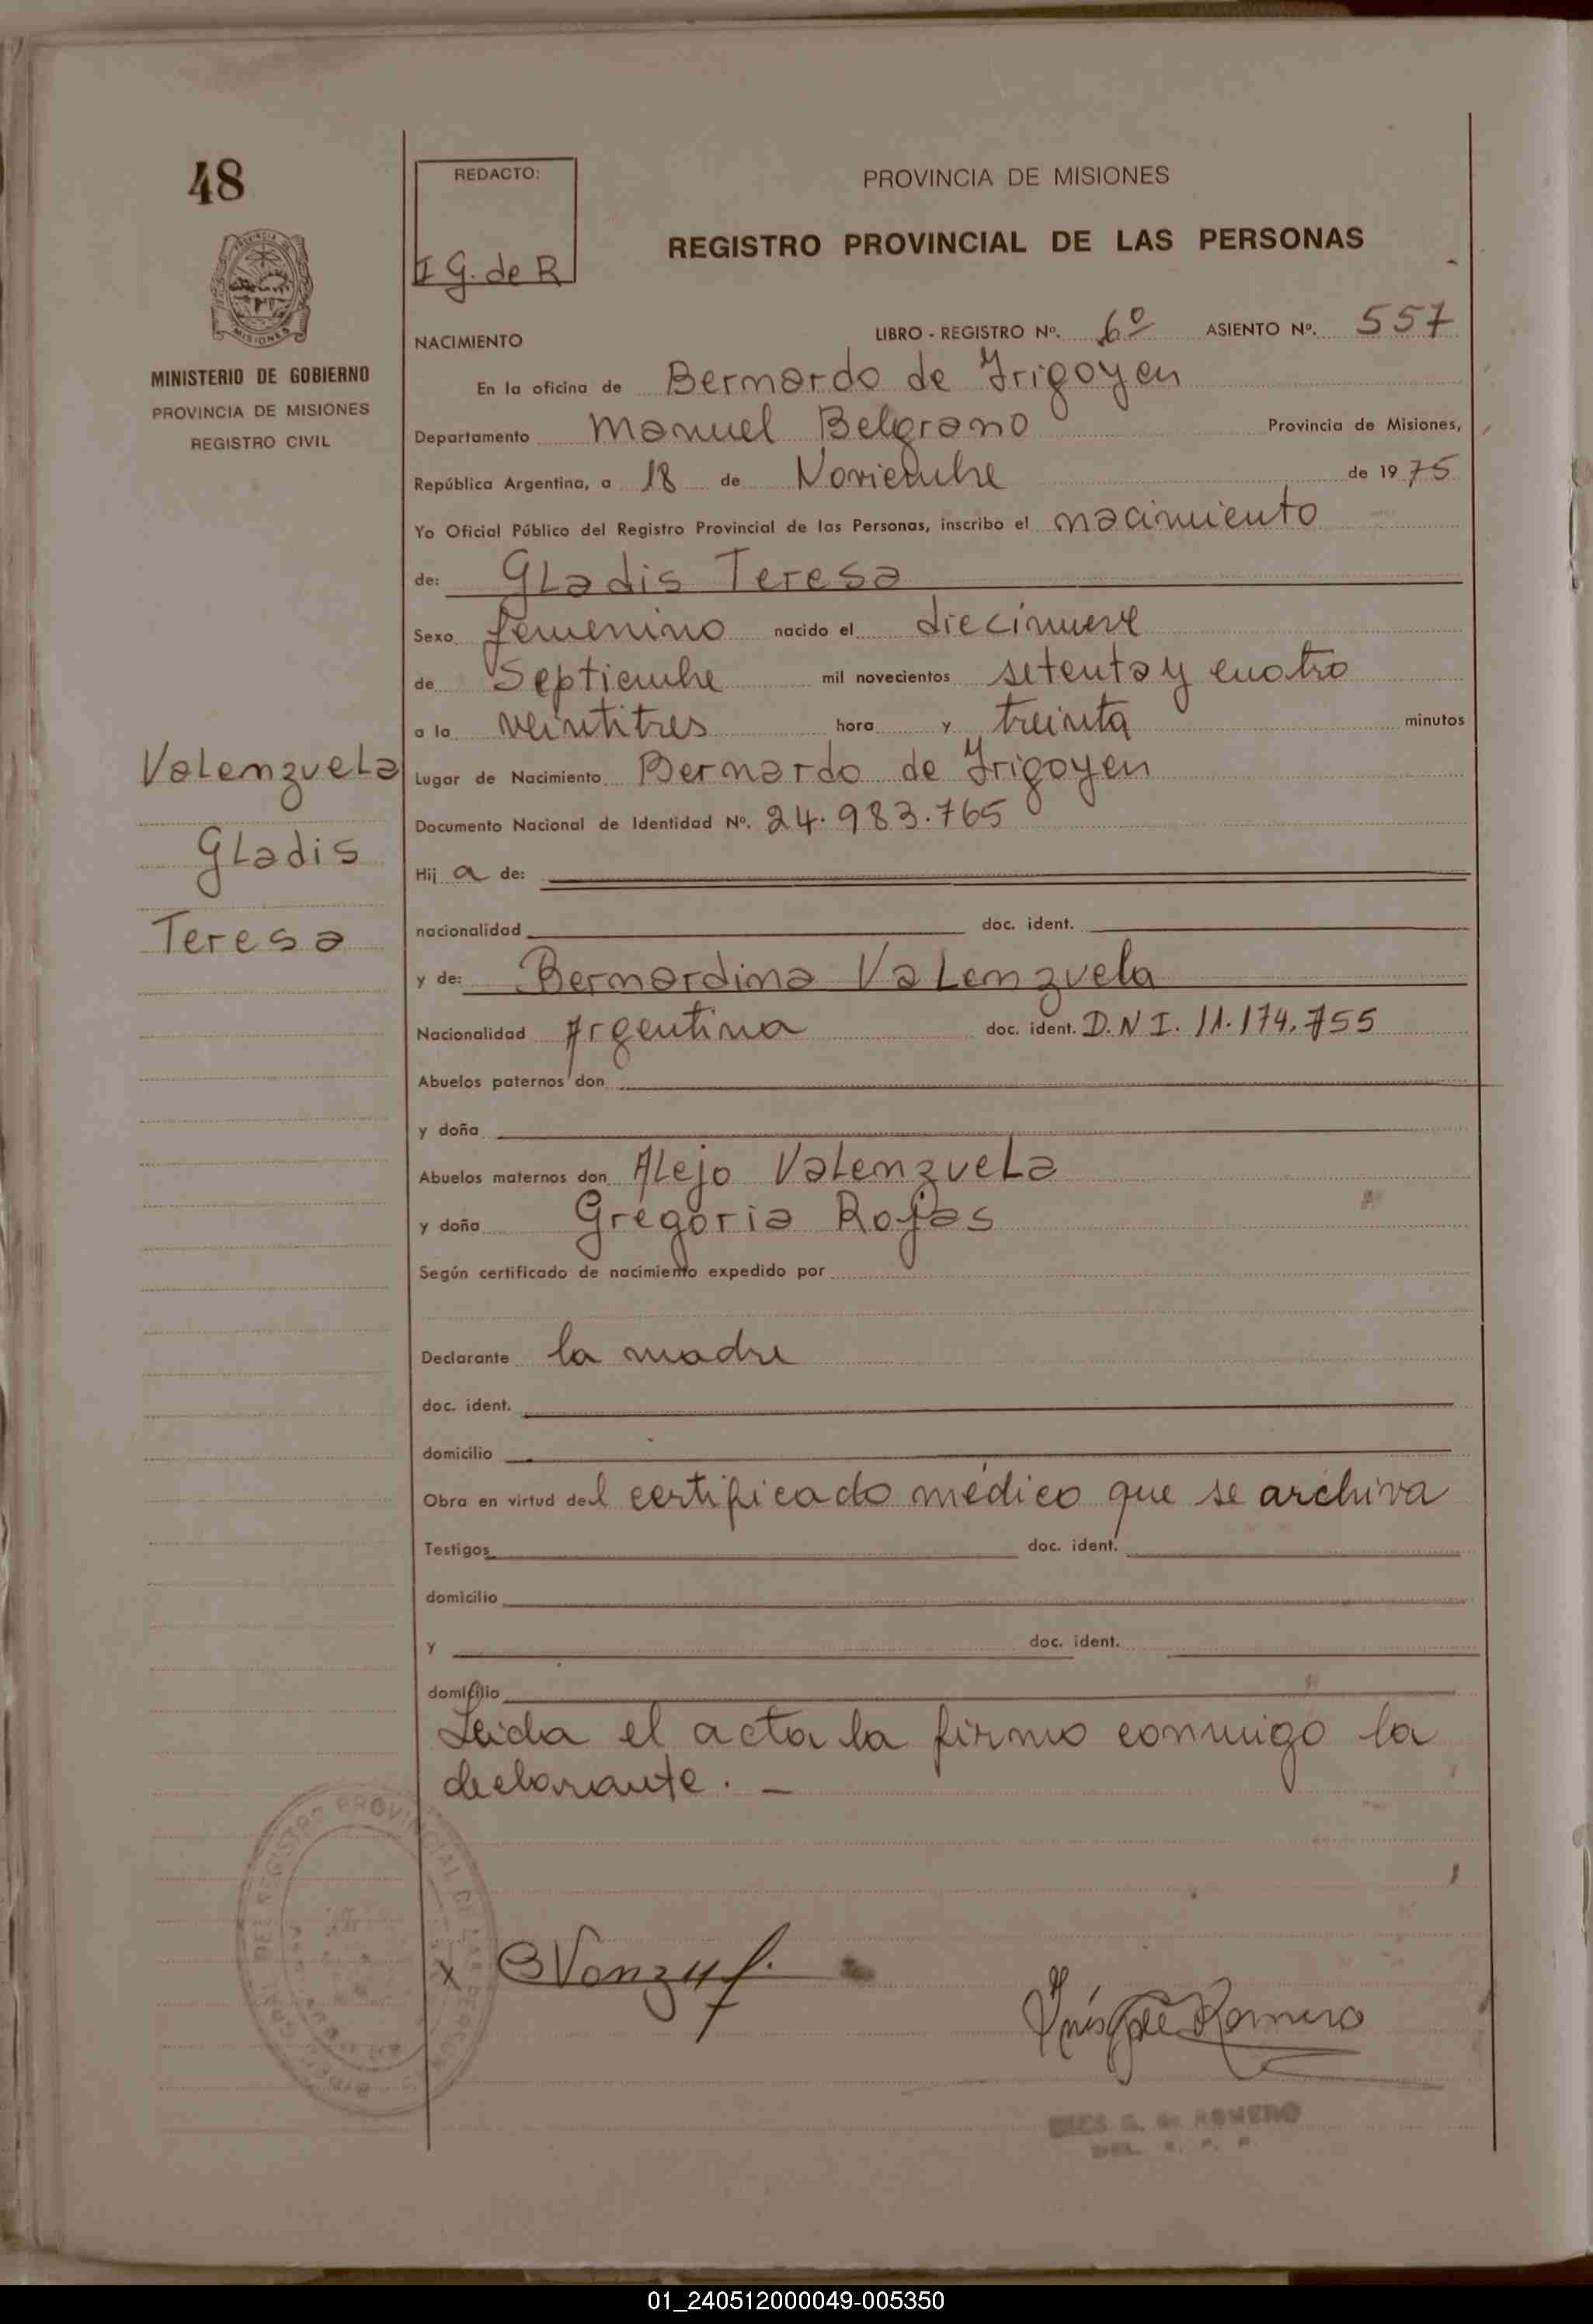 48
REDACTO:
I G. de R
PROVINCIA DE MISIONES
REGISTRO PROVINCIAL DE LAS PERSONAS
MINISTERIO DE GOBIERNO
PROVINCIA DE MISIONES
REGISTRO CIVIL
NACIMIENTO LIBRO - REGISTRO Nº. 6º ASIENTO Nº. 557
En la oficina de Bernardo de Irigoyen
Departamento Manuel Belgrano Provincia de Misiones,
República Argentina, a 18 de Noviembre de 1975
Yo Oficial Público del Registro Provincial de las Personas, inscribo el nacimiento
de: Gladis Teresa
Sexo femenino nacido el diecinueve
de Septiembre mil novecientos setenta y cuatro
a la veintitres hora y treinta minutos
Valenzuela
Gladis
Teresa
Lugar de Nacimiento Bernardo de Irigoyen
Documento Nacional de Identidad Nº. 24.983.765
Hij a de:
nacionalidad doc. ident.
y de: Bernardina Valenzuela
Nacionalidad Argentina doc. ident. D.N I. 11.174.755
Abuelos paternos don
y doña
Abuelos maternos don Alejo Valenzuela
y doña Gregoria Rojas
Según certificado de nacimiento expedido por
Declarante la madre
doc. ident.
domicilio
Obra en virtud del certificado médico que se archiva
Testigos doc. ident.
domicilio
y doc. ident.
domicilio
Leida el acta la firma conmigo la
declarante. -
DEL REGISTRO PROVINCIAL DE LAS PERSONAS
x
Inés G de Romero
INES G. de ROMERO
01_240512000049-005350